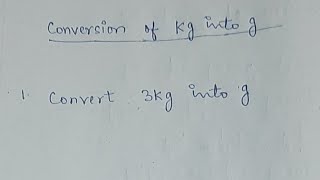 Conversion of Kg into g
1. Convert 3kg into g